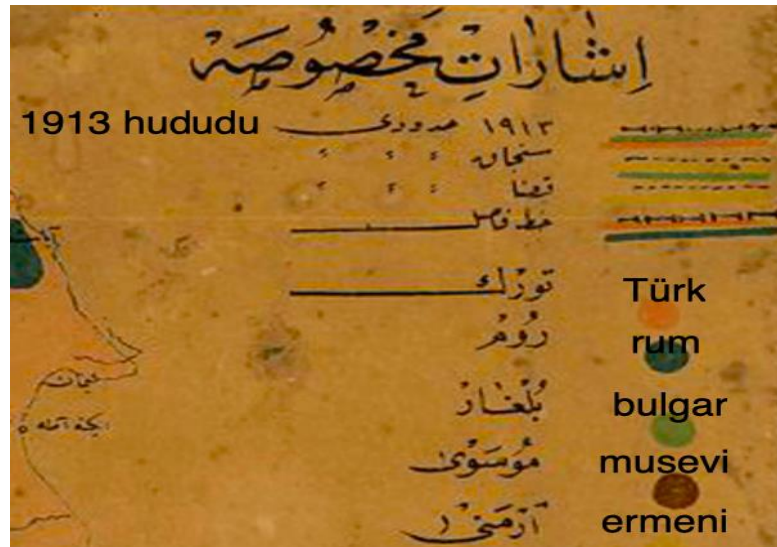 اشارات مخصوصه
1913 hududu ١٩١٣ حدودی
سنجاق " " "
قضا " " "
خط فاصل
تورك Türk
روم rum
بلغار bulgar
موسوی musevi
ارمنی ermeni